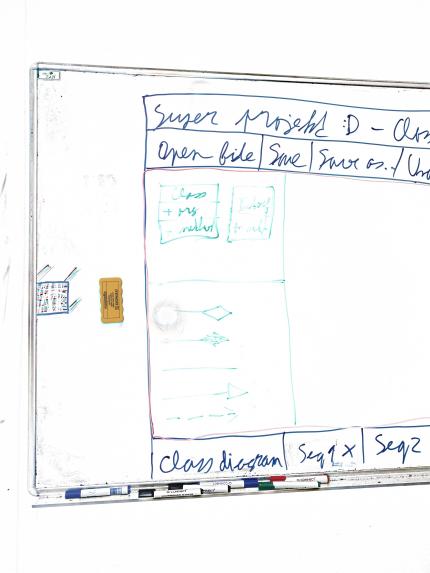 Super projekt :D - Clas
Open file Save Save as..
Class
+ arg
Class diagram Seq1 x Seq2